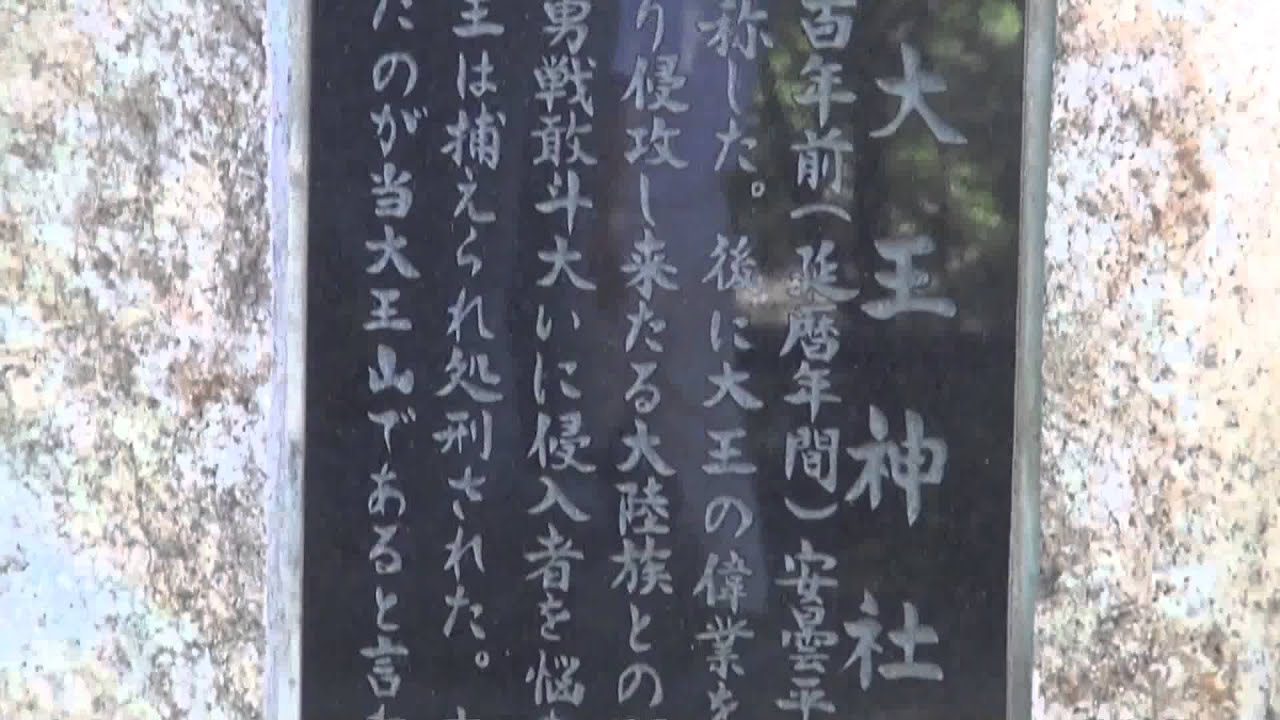 大王神社
百年前（延暦年間）安曇平
称した。後に大王の偉業を
り侵攻し来たる大陸族との
勇戦敢斗大いに侵入者を悩
王は捕えられ処刑された。
たのが当大王山であると言